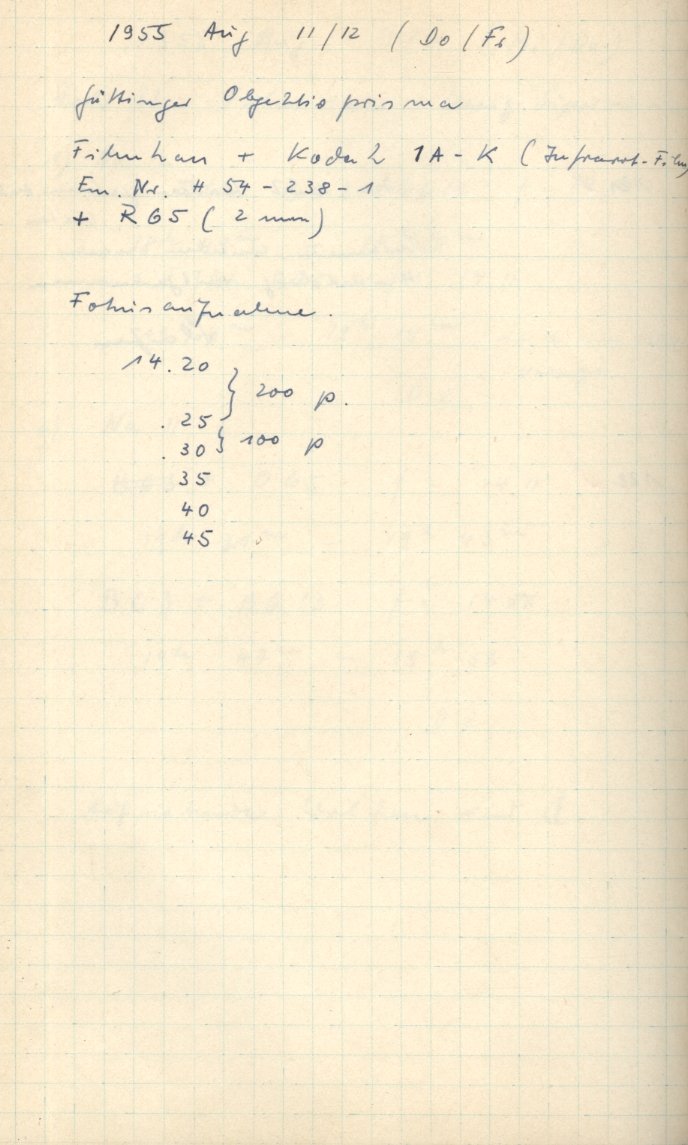 1955 Aug 11/12 (Do/Fr)
Göttinger Objektivprisma
Filmhan + Kodak 1A-K (Infrarot-Film)
Em. Nr. # 54-238-1
+ RG5 (2 mm)
Fokusaufnahme.
14.20
} 200 p.
.25
.30 } 100 p
35
40
45